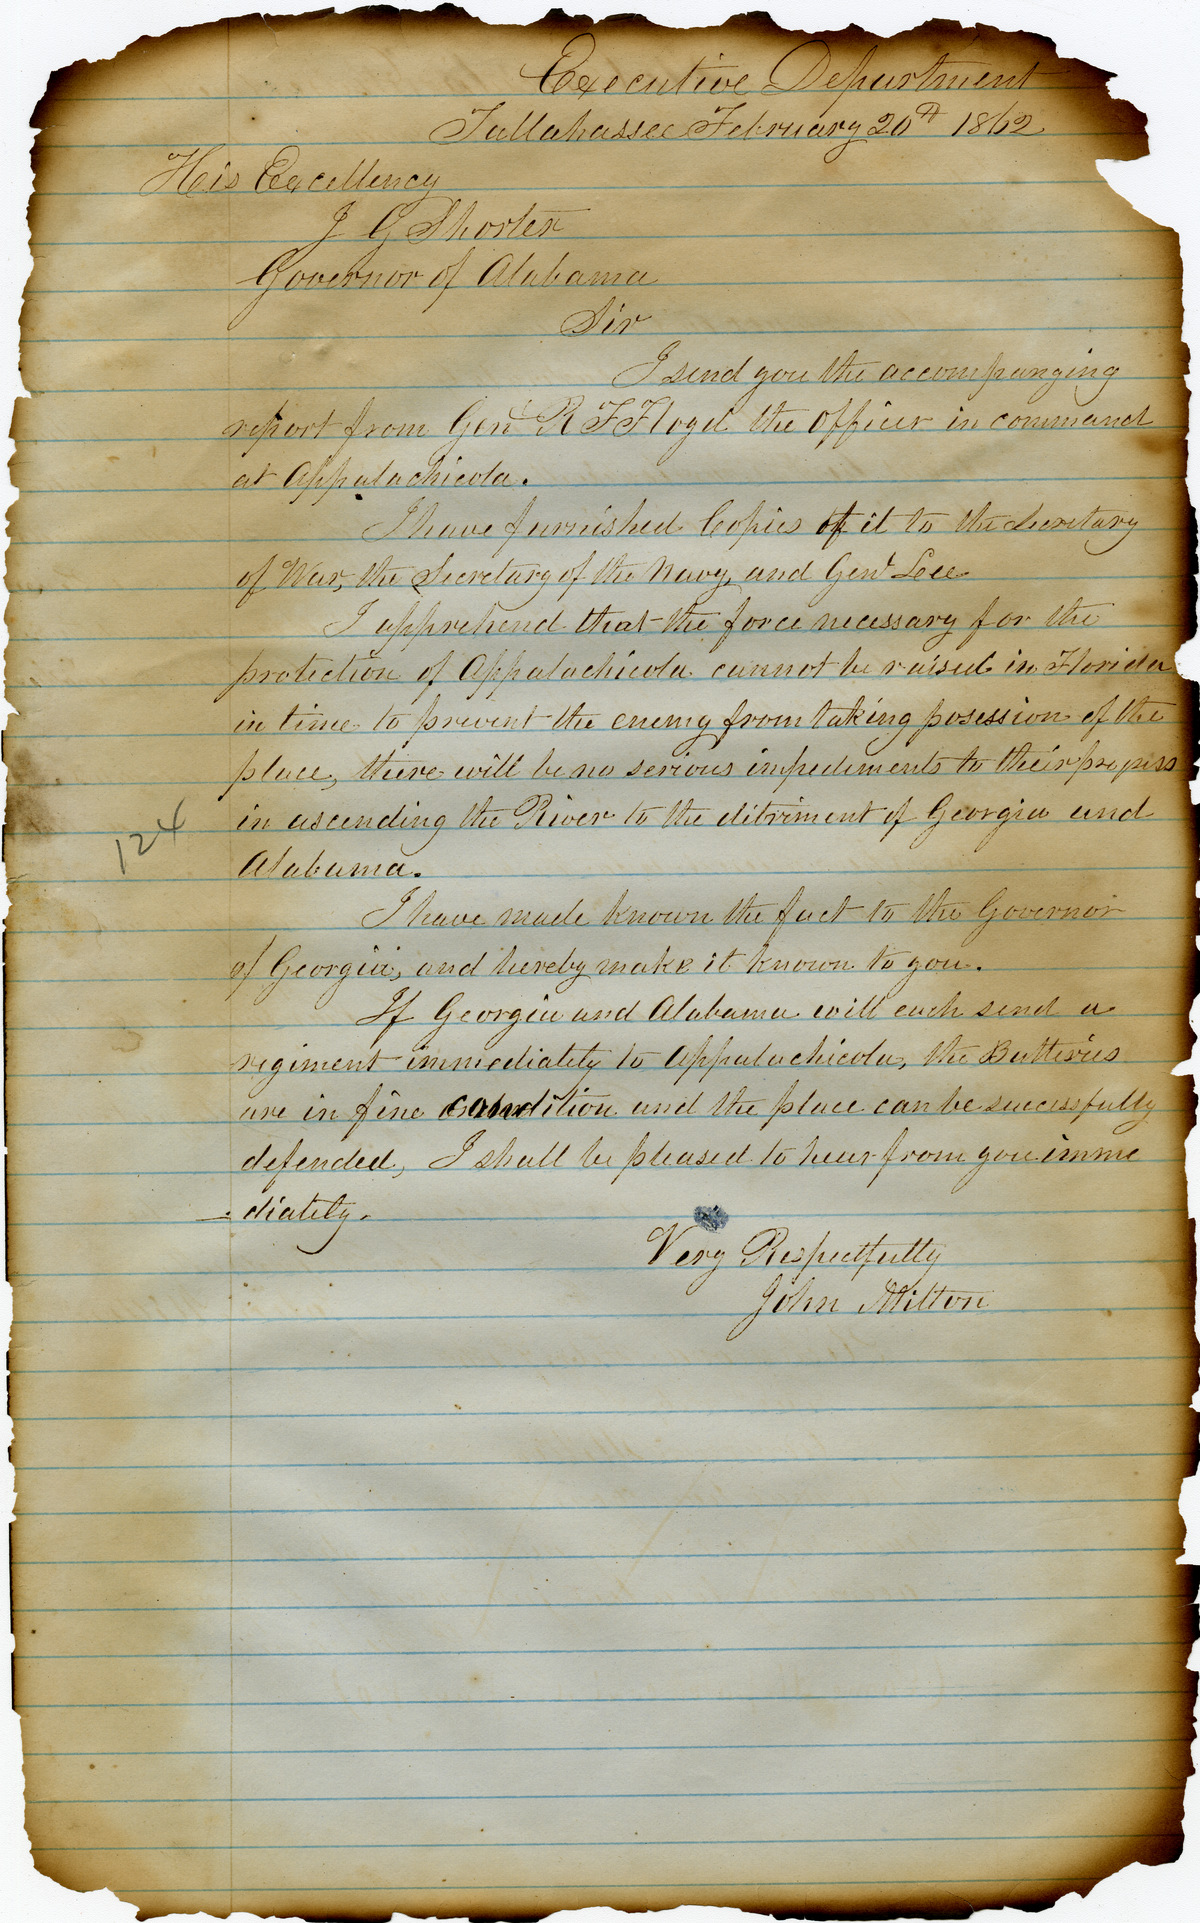 Executive Department
Tallahassee February 20th 1862
His Excellency
J G Shorter
Governor of Alabama
Sir
I send you the accompanying
report from Genl R F Floyd the Officer in command
at Appalachicola.
I have furnished Copies of it to the Secretary
of War, the Secretary of the Navy, and Genl Lee
I apprehend that the force necessary for the
protection of Appalachicola cannot be raised in Florida
in time to prevent the enemy from taking posession of the
place, there will be no serious impediments to their progress
in ascending the River to the detriment of Georgia and
Alabama.
I have made known the fact to the Governor
of Georgia, and hereby make it known to you.
If Georgia and Alabama will each send a
regiment immediately to Appalachicola, the Batteries
are in fine condition and the place can be successfully
defended, I shall be pleased to hear from you imme
diately.
Very Respectfully
John Milton
124